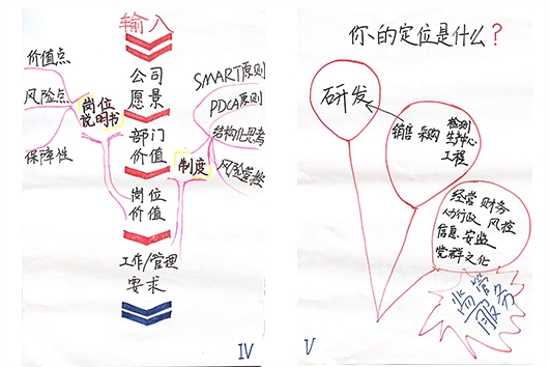 输入
价值点
风险点
保障性
岗位
说明书
公司
愿景
部门
价值
岗位
价值
工作/管理
要求
制度
SMART原则
PDCA原则
结构化思考
风险管控
IV
你的定位是什么？
研发
销售 采购
检测
工程
经营 财务
风控
信息 安监
党群文化
监管
服务
V